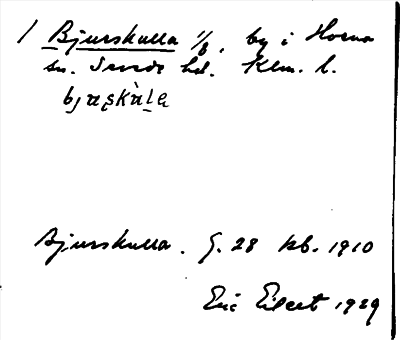 / Bjurskulla 1/8, by i Horns
sn. Sevede hd. Klm. l.
bjɯskàla
Bjurskulla. G. 28 kb. 1910
Eric Eilert 1929